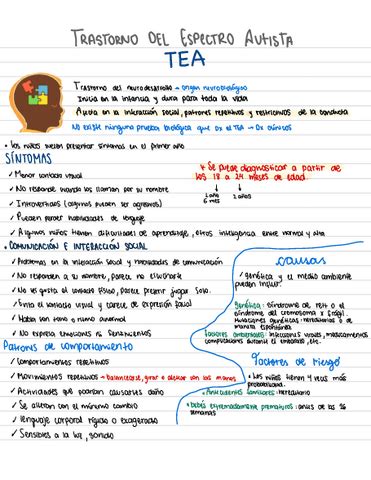 TRASTORNO DEL ESPECTRO AUTISTA
TEA
Trastorno del neurodesarrollo → origen neurobiológico
Inicia en la infancia y dura para toda la vida
Afecta en la interacción social, patrones repetitivos y restrictivos de la conducta
No existe ninguna prueba biológica que dx el TEA → Dx clínicos
• los niños suelen presentar síntomas en el primer año
SÍNTOMAS
✓ Menor contacto visual
* Se puede diagnosticar a partir de
los 18 a 24 meses de edad.
✓ No responde cuando los llaman por su nombre
1 año 6 mes
2 años
✓ Introvertidos (algunos pueden ser agresivos)
✓ Pueden perder habilidades de lenguaje
✓ Algunos niños tienen dificultades de aprendizaje, otros inteligencia entre normal y alta
• COMUNICACIÓN E INTERACCIÓN SOCIAL
✓ Problemas en la interacción social y habilidades de comunicación
✓ No responden a su nombre, parece no escucharte
✓ No les gusta el contacto físico, parece preferir jugar solo.
✓ Evita el contacto visual y carece de expresión facial
✓ Habla con tono o ritmo anormal
✓ No expresa emociones ni sentimientos
Causas
• genética y el medio ambiente
pueden influir.
genética: síndrome de rett o el
síndrome del cromosoma x frágil.
Mutaciones genéticas: hereditarias o de
manera espontánea
factores ambientales: infecciones virales, medicamentos
complicaciones durante el embarazo, etc.
Patrones de comportamiento
✓ Comportamientos repetitivos
✓ Movimientos repetitivos → balancearse, girar o aletear con las manos
✓ Actividades que podrían causarles daño
✓ Se alteran con el mínimo cambio
✓ lenguaje corporal rígido o exagerado
✓ Sensibles a la luz, sonido
Factores de riesgo
• Los niños tienen 4 veces más
probabilidad.
• Antecedentes familiares: hereditario
• bebés extremadamente prematuros: antes de las 26
semanas